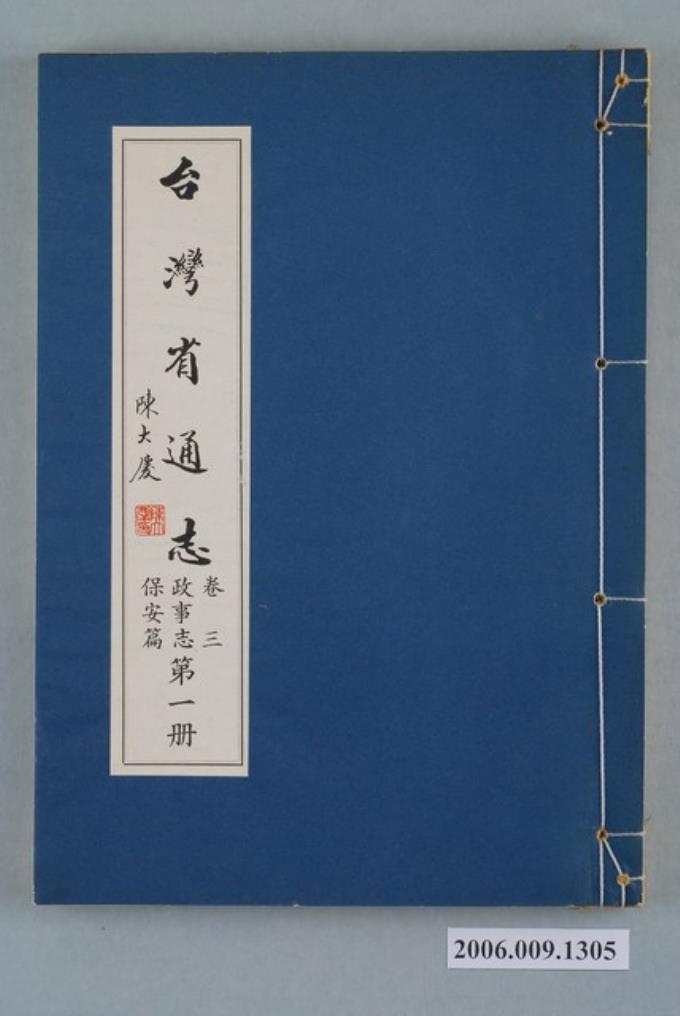 台灣省通志
卷三
政事志
保安篇
第一册
陳大慶
2006.009.1305